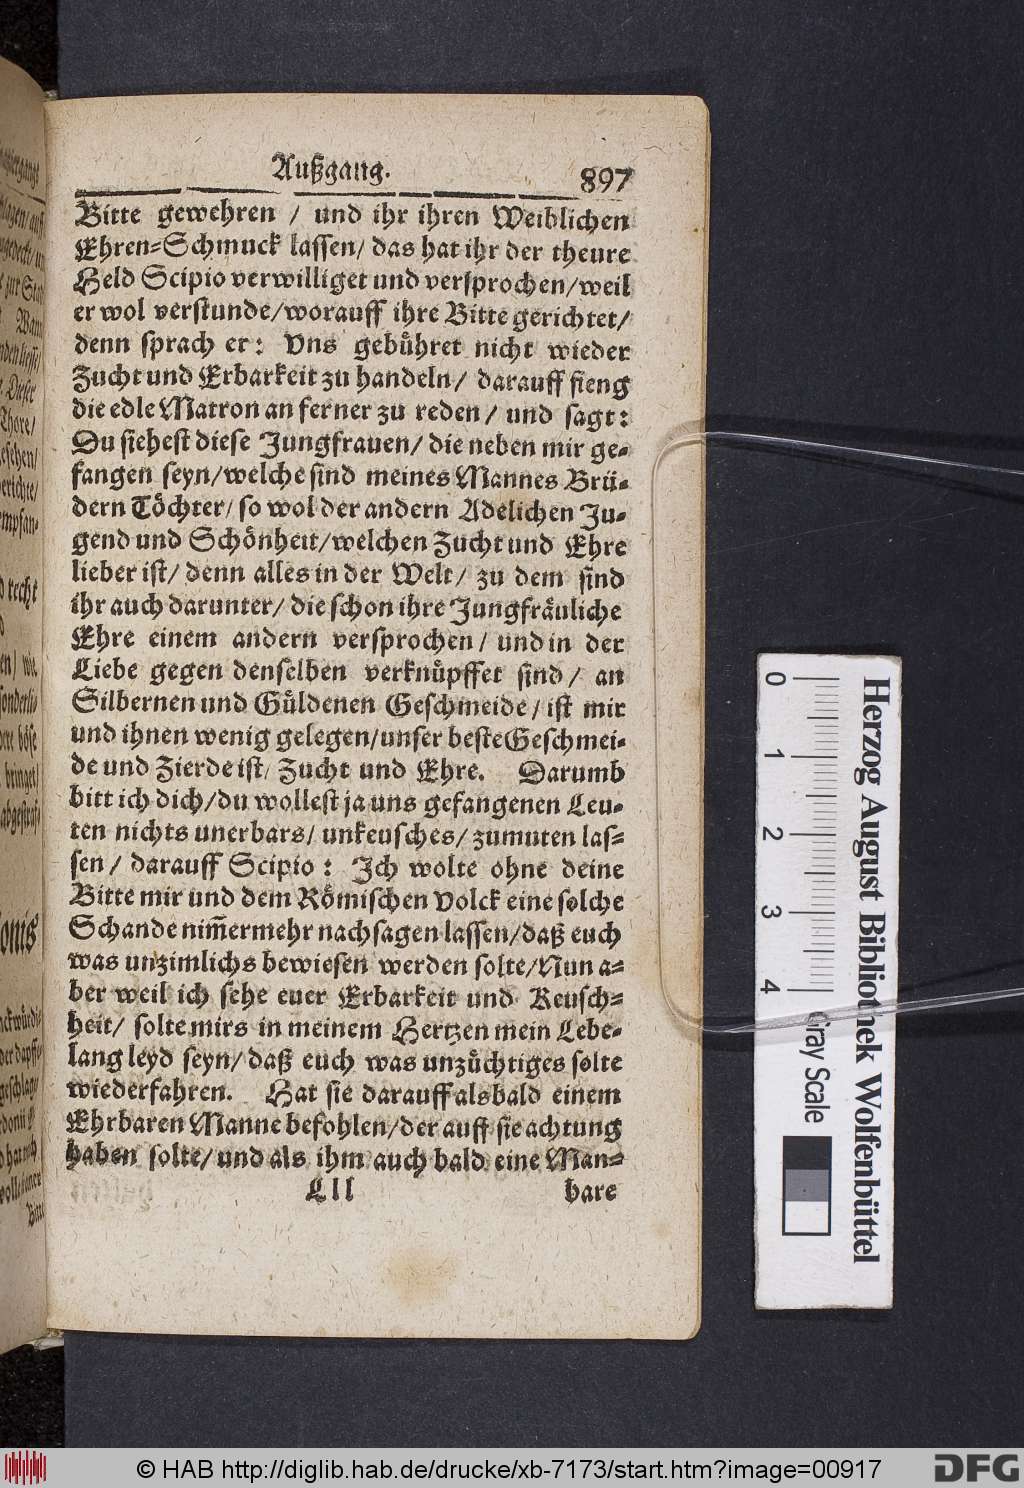 Außgang. 897
Bitte gewehren / und ihr ihren Weiblichen
Ehren-Schmuck lassen/ das hat ihr der theure
Held Scipio verwilliget und versprochen/weil
er wol verstunde/worauff ihre Bitte gerichtet/
denn sprach er: Uns gebühret nicht wieder
Zucht und Erbarkeit zu handeln/ darauff fieng
die edle Matron an ferner zu reden/ und sagt:
Du siehest diese Jungfrauen/ die neben mir ge-
fangen seyn/welche sind meines Mannes Brü-
dern Töchter/ so wol der andern Adelichen Ju-
gend und Schönheit/welchen Zucht und Ehre
lieber ist/ denn alles in der Welt/ zu dem sind
ihr auch darunter/ die schon ihre Jungfräuliche
Ehre einem andern versprochen/ und in der
Liebe gegen denselben verknüpffet sind/ an
Silbernen und Güldenen Geschmeide/ ist mir
und ihnen wenig gelegen/unser beste Geschmei-
de und Zierde ist/ Zucht und Ehre. Darumb
bitt ich dich/du wollest ja uns gefangenen Leu-
ten nichts unerbars/ unkeusches/ zumuten las-
sen/ darauff Scipio: Ich wolte ohne deine
Bitte mir und dem Römischen Volck eine solche
Schande nim̃ermehr nachsagen lassen/daß euch
was unzimlichs bewiesen werden solte/Nun a-
ber weil ich sehe euer Erbarkeit und Keusch-
heit/ solte mirs in meinem Hertzen mein Lebe-
lang leyd seyn/ daß euch was unzüchtiges solte
wiederfahren. Hat sie darauff alsbald einem
Ehrbaren Manne befohlen/der auff sie achtung
haben solte/ und als ihm auch bald eine Man-
Lll bare
0 1 2 3 4
Herzog August Bibliothek Wolfenbüttel
Gray Scale
© HAB http://diglib.hab.de/drucke/xb-7173/start.htm?image=00917
DFG